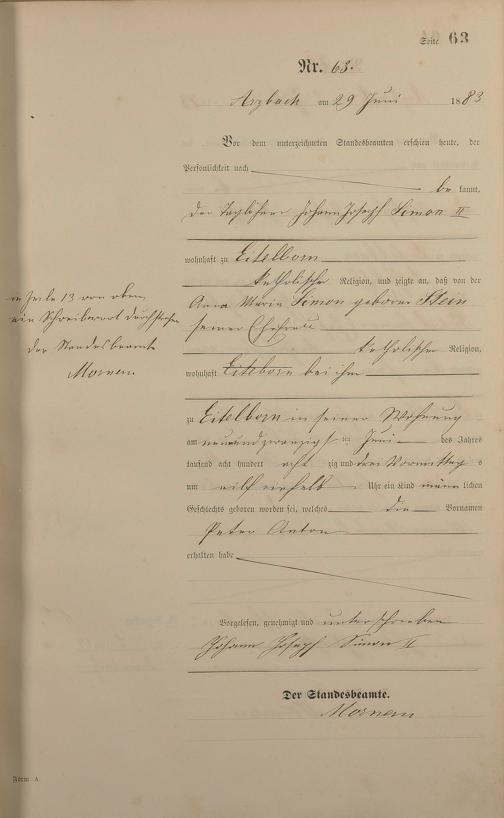 Seite 63
Nr. 63.
Arzbach am 29 Juni 1883
Vor dem unterzeichneten Standesbeamten erschien heute, der
Persönlichkeit nach
be kannt,
der Taglöhner Johann Joseph Simon II
wohnhaft zu Eitelborn
katholischer Religion, und zeigte an, daß von der
Anna Maria Simon geborne Stein
seiner Ehefrau
katholischer Religion,
wohnhaft Eitelborn bei ihm
zu Eitelborn in seiner Wohnung
am neunundzwanzigsten Juni des Jahres
tausend acht hundert acht zig und drei Vormittag s
um eilf einhalb Uhr ein Kind männ lichen
Geschlechts geboren worden sei, welches die Vornamen
Peter Anton
erhalten habe
Vorgelesen, genehmigt und unterschrieben
Johann Joseph Simon II
Der Standesbeamte.
in Zeile 13 von oben
ein Schreibwort durchstrichen
der Standesbeamte
Form A.